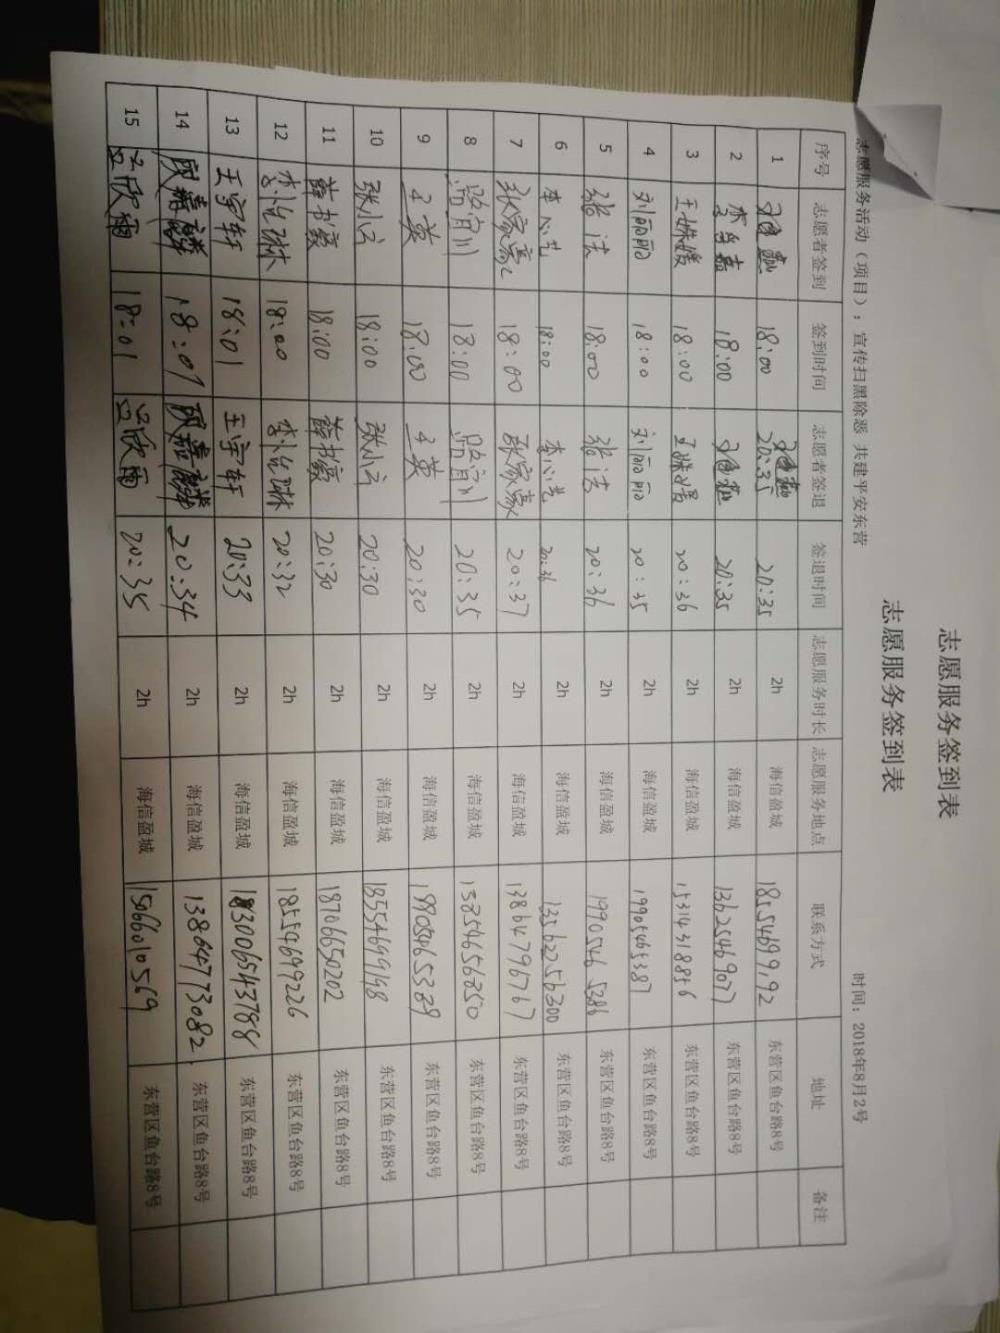 志愿服务签到表
志愿服务签到表
志愿服务活动（项目）：宣传扫黑除恶 共建平安东营 时间：2018年8月2号
序号 志愿者签到 签到时间 志愿者签退 签退时间 志愿服务时长 志愿服务地点 联系方式 地址 备注
1 18:00 20:35 20:35 2h 海信盈城 18554699192 东营区鱼台路8号
2 18:00 20:35 2h 海信盈城 13625469077 东营区鱼台路8号
3 18:00 20:36 2h 海信盈城 15314318846 东营区鱼台路8号
4 刘丽丽 18:00 刘丽丽 20:35 2h 海信盈城 19905465387 东营区鱼台路8号
5 张洁 18:00 张洁 20:36 2h 海信盈城 19905465386 东营区鱼台路8号
6 李心芝 18:00 李心芝 20:36 2h 海信盈城 13562256300 东营区鱼台路8号
7 张家豪 18:00 张家豪 20:37 2h 海信盈城 13864796767 东营区鱼台路8号
8 18:00 20:35 2h 海信盈城 13854656850 东营区鱼台路8号
9 王英 18:00 王英 20:30 2h 海信盈城 19905465389 东营区鱼台路8号
10 张小云 18:00 张小云 20:30 2h 海信盈城 18554699198 东营区鱼台路8号
11 薛书豪 18:00 薛书豪 20:30 2h 海信盈城 18706650202 东营区鱼台路8号
12 18:00 20:32 2h 海信盈城 18554699226 东营区鱼台路8号
13 王宇轩 18:01 王宇轩 20:33 2h 海信盈城 东营区鱼台路8号
14 顾嘉麟 18:01 顾嘉麟 20:34 2h 海信盈城 13864773082 东营区鱼台路8号
15 吕欣雨 18:01 吕欣雨 20:35 2h 海信盈城 15066010569 东营区鱼台路8号